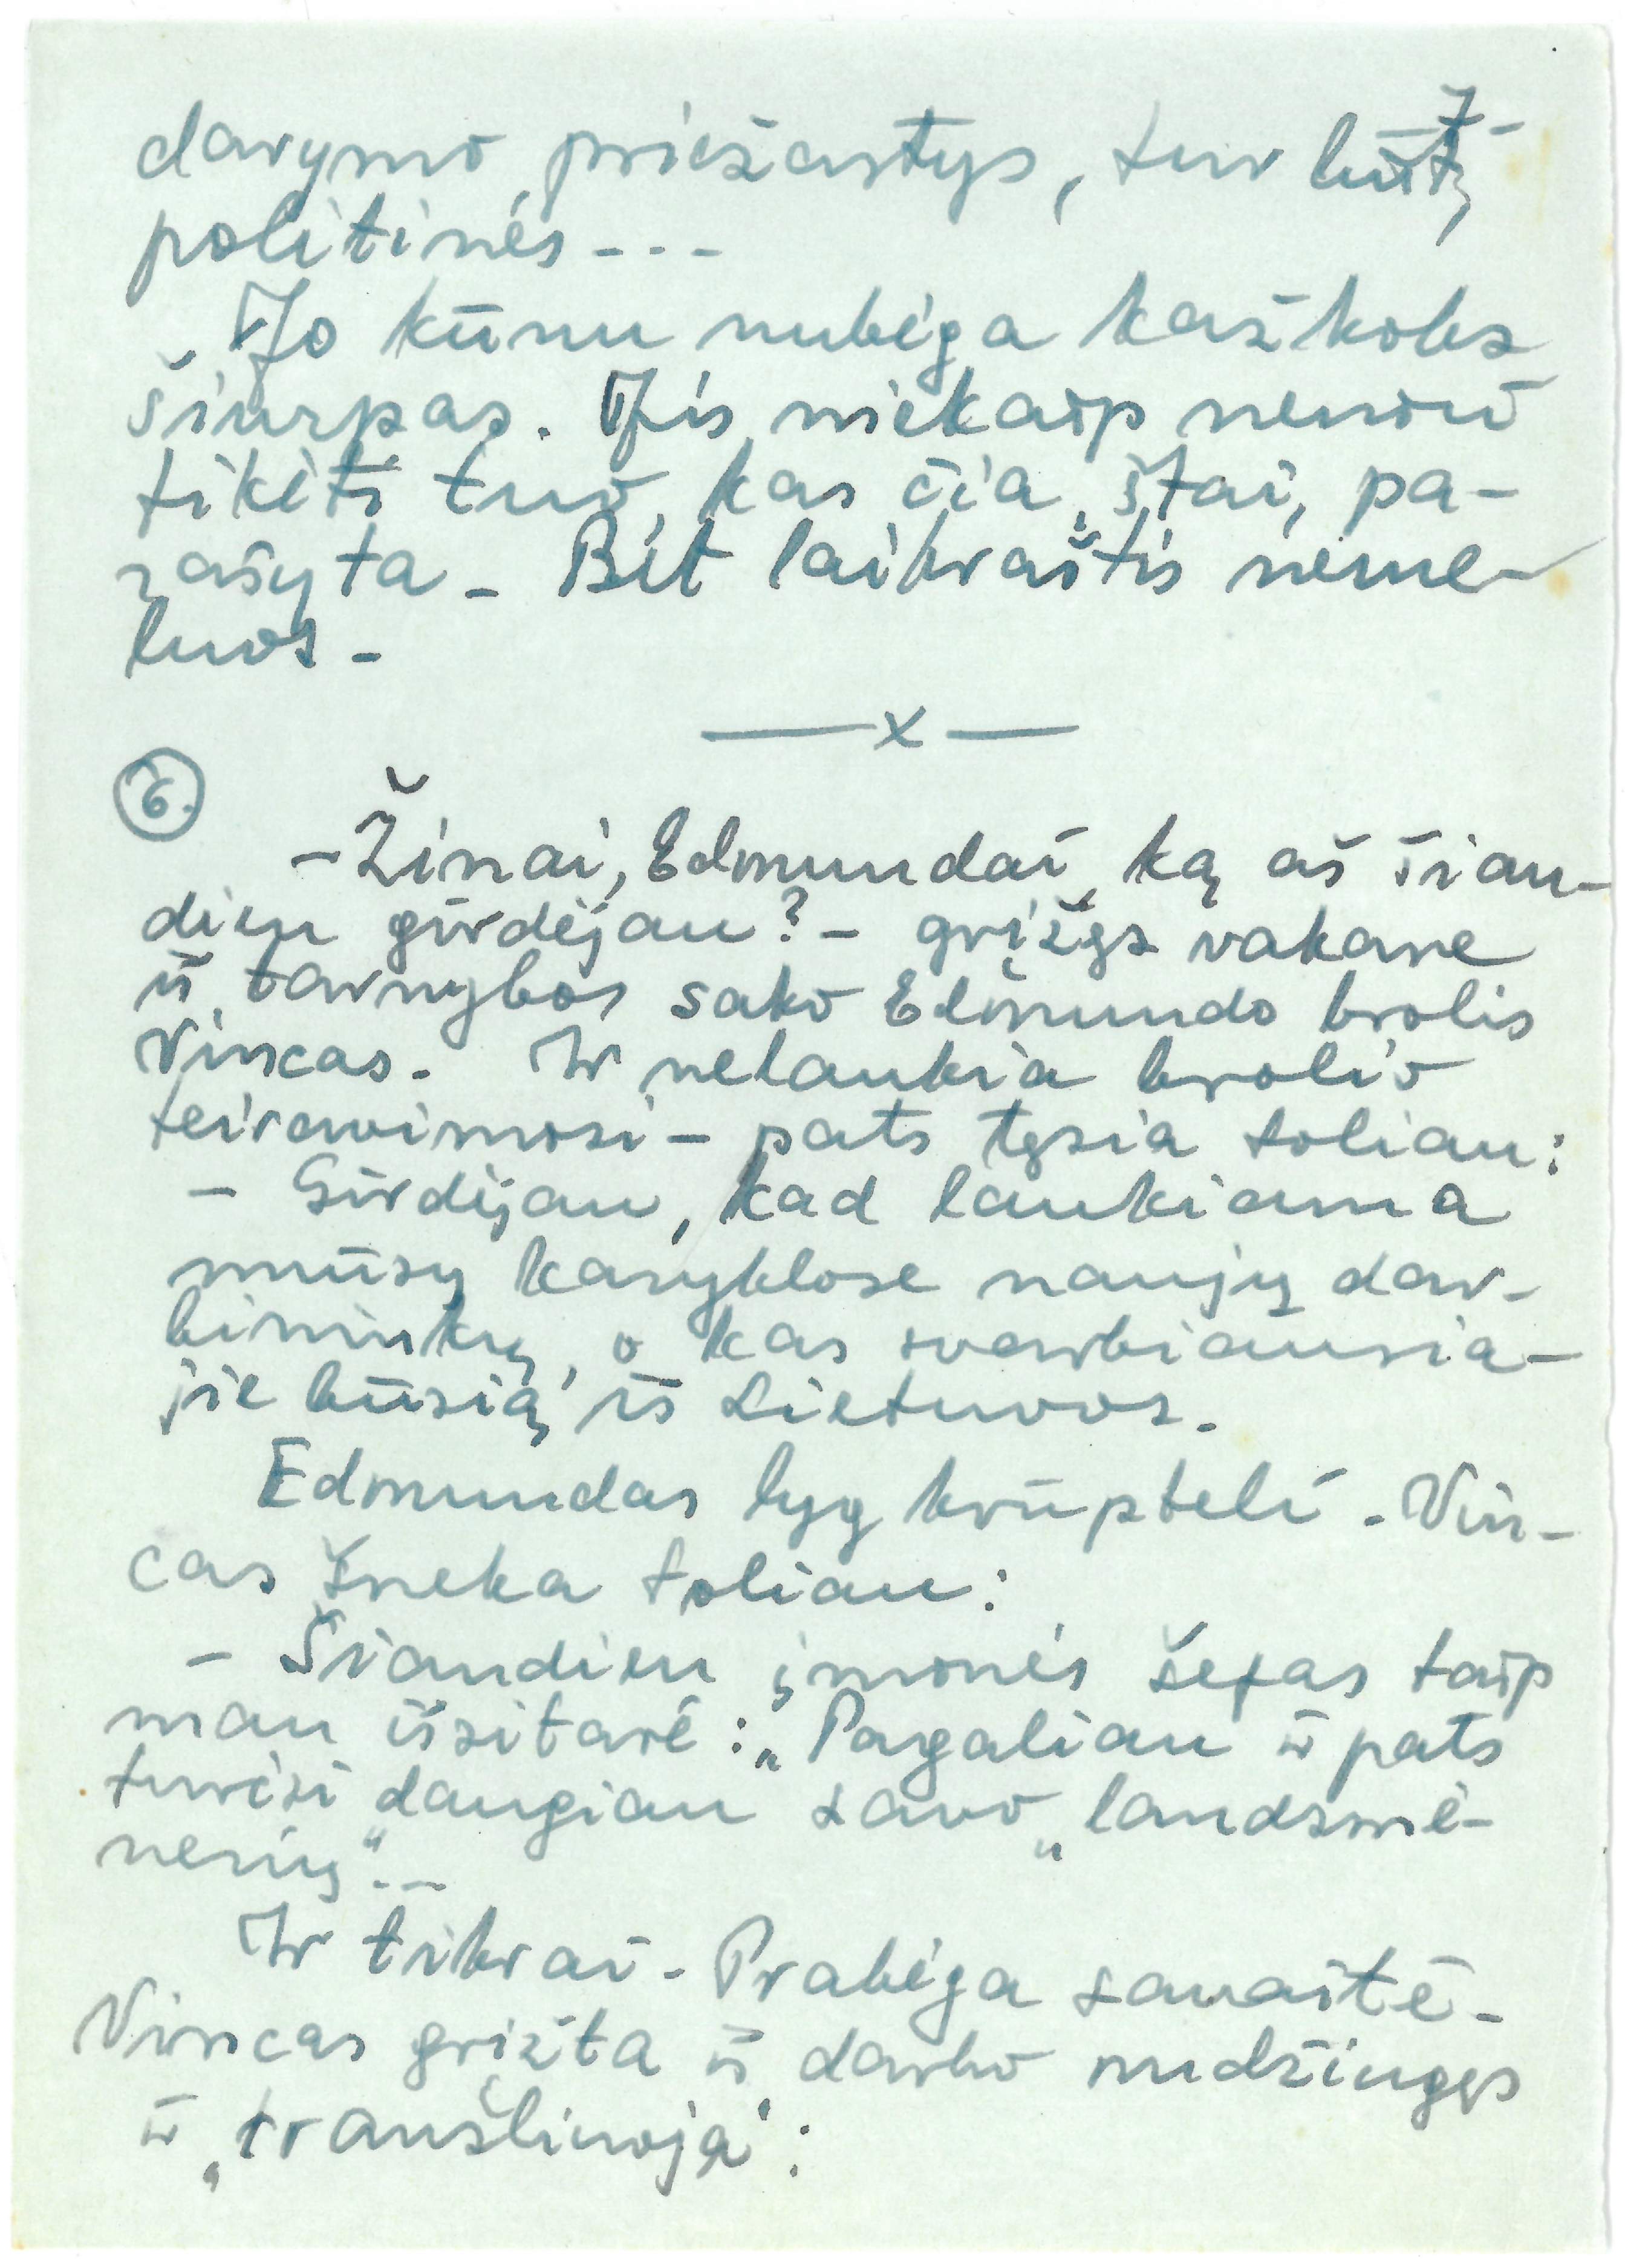 darymo priežastys, tur būt,
7-
politinės...
Jo kūnu nubėga kažkoks
šiurpas. Jis niekaip nenori
tikėti tuo, kas čia, štai, pa-
rašyta. Bet laikraštis neme-
luos.
—x—
6.
- Žinai, Edmundai, ką aš šian-
dien girdėjau? - grįžęs vakare
iš tarnybos sako Edmundo brolis
Vincas. Ir nelaukia brolio
teiravimosi - pats tęsia toliau:
- Girdėjau, kad laukiama
mūsų kasyklose naujų dar-
bininkų, o kas svarbiausia -
jie būsią iš Lietuvos.
Edmundas lyg krūpteli. Vin-
cas šneka toliau:
- Šiandien įmonės šefas taip
man išsitarė: „Pagaliau ir pats
turėsi daugiau savo „landsmė-
nerių"...
Ir tikrai. Prabėga savaitė.
Vincas grįžta iš darbo nudžiugęs
ir „tranšliuoja":